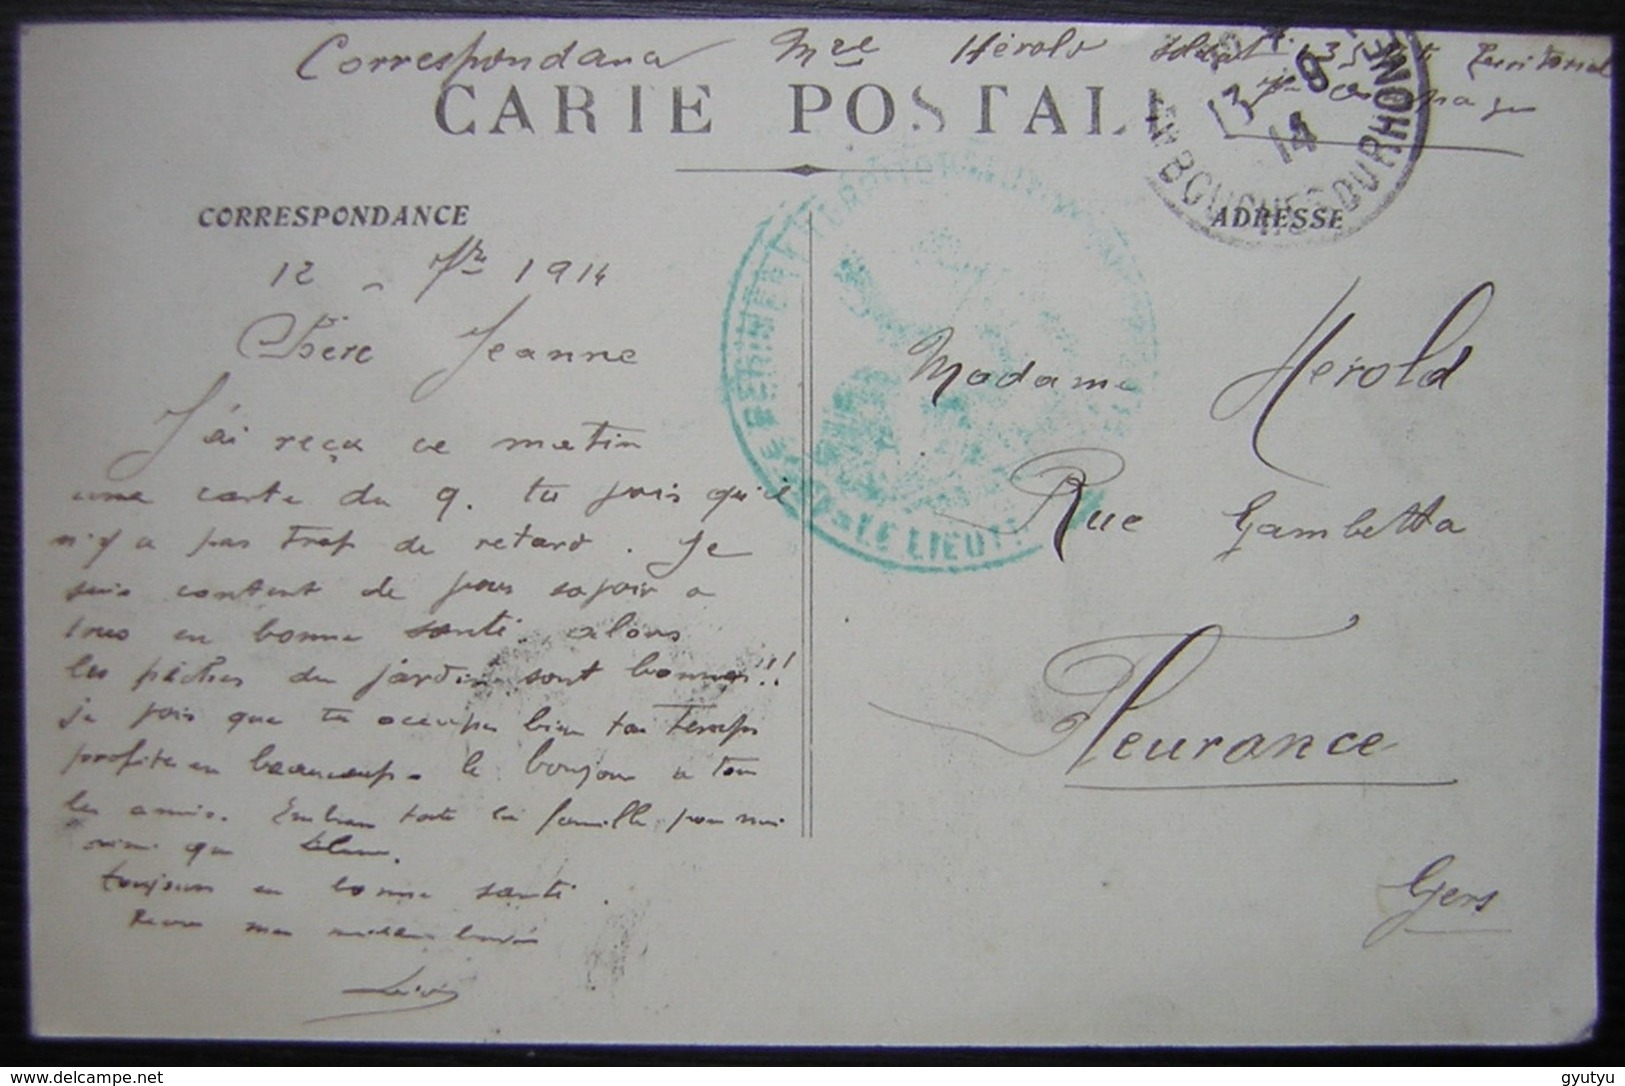 Correspondance Mre Hérold soldat 135 Territorial
CARTE POSTALE
13 9
14
BOUCHES DU RHONE
CORRESPONDANCE
ADRESSE
12 - 7bre 1914
Chère Jeanne
J'ai reça ce matin
une carte du 9. tu vois qu'il
n'y a pas trop de retard. Je
suis content de vous savoir a
tous en bonne santé. alors
les pêches du jardin sont bonnes!!
je vois que tu occupes bien ton temps
profites en beaucoup. le bonjour a tous
les amis. Embrasse toute la famille pour moi
ainsi que
toujours en bonne santé.
Recois mes meilleurs baisers
Madame Hérold
Rue Gambetta
Fleurance
Gers
LE LIEUT
gyutyu